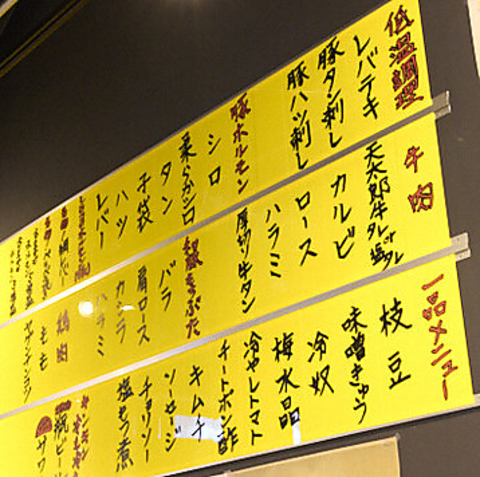 低温調理
レバテキ
豚タン刺し
豚ハツ刺し
豚ホルモン
シロ
柔らかシロ
タン
子袋
ハツ
レバー
牛肉
天太郎牛タレorタレ
カルビ
ロース
ハラミ
厚切り牛タン
豚きぶた
バラ
肩ロース
カシラ
ハラミ
鶏肉
もも
ヤゲンナンコツ
一品メニュー
枝豆
味噌きゅう
冷奴
梅水晶
冷やしトマト
チートポン酢
キムチ
ソーセージ
チョリソー
塩もつ煮
キンキン
瓶ビール
サワー